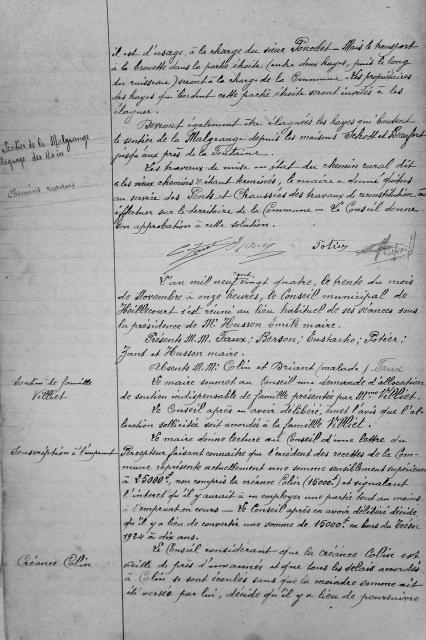 il est d'usage, à la charge du sieur Poncelet — Mais le transport
à la brouette dans la partie étroite (entre deux hayes, puis le long
du ruisseau) seront à la charge de la Commune. Les propriétaires
des hayes qui bordent cette partie étroite seront invités à les
élaguer.
Devront également être élaguées les hayes qui bordent
Sentier de la Malgrange
le sentier de la Malgrange depuis les maisons Schott et
élagage des haies
jusqu'aux près de la Fontaine.
Chemins ruraux
Les travaux de mise en état du chemin rural dit
"les vieux chemins" étant terminés, le maire a donné
au service des Ponts et Chaussées des travaux de reconstitution à
effectuer sur le territoire de la Commune — Le Conseil donne
son approbation à cette solution.
Potier
L'an mil neuf cent vingt quatre, le trente du mois
de Novembre à onze heures, le Conseil municipal de
Heillecourt s'est réuni au lieu habituel de ses séances sous
la présidence de Mr Husson Emile maire.
Présents M.M. Faux; Berson; Eustache; Potier;
Jans et Husson maire.
Absents M.M. Colin et Briant (malade) Faux
Soutien de famille
Villiet
Le maire soumet au Conseil une demande d'allocation
de soutien indispensable de famille présentée par Mme Villiet.
Le Conseil après en avoir délibéré, émet l'avis que l'al-
location sollicitée soit accordée à la famille Villiet.
Le maire donne lecture au Conseil d'une lettre du
Souscription à l'emprunt
Percepteur faisant connaître que l'excédent des recettes de la Com-
mune représente actuellement une somme sensiblement supérieure
à 25000f, non compris la créance Colin (15000f) et signalant
l'intérêt qu'il y aurait à en employer une partie tout au moins
à l'emprunt en cours — Le Conseil après en avoir délibéré décide
qu'il y a lieu de convertir une somme de 15000f en bons du Trésor
1924 à dix ans.
Créance Colin
Le Conseil considérant que la créance Colin est
vieille de près d'une année et que tous les délais accordés
à Colin se sont écoulés sans que la moindre somme ait
été versée par lui, décide qu'il y a lieu de poursuivre